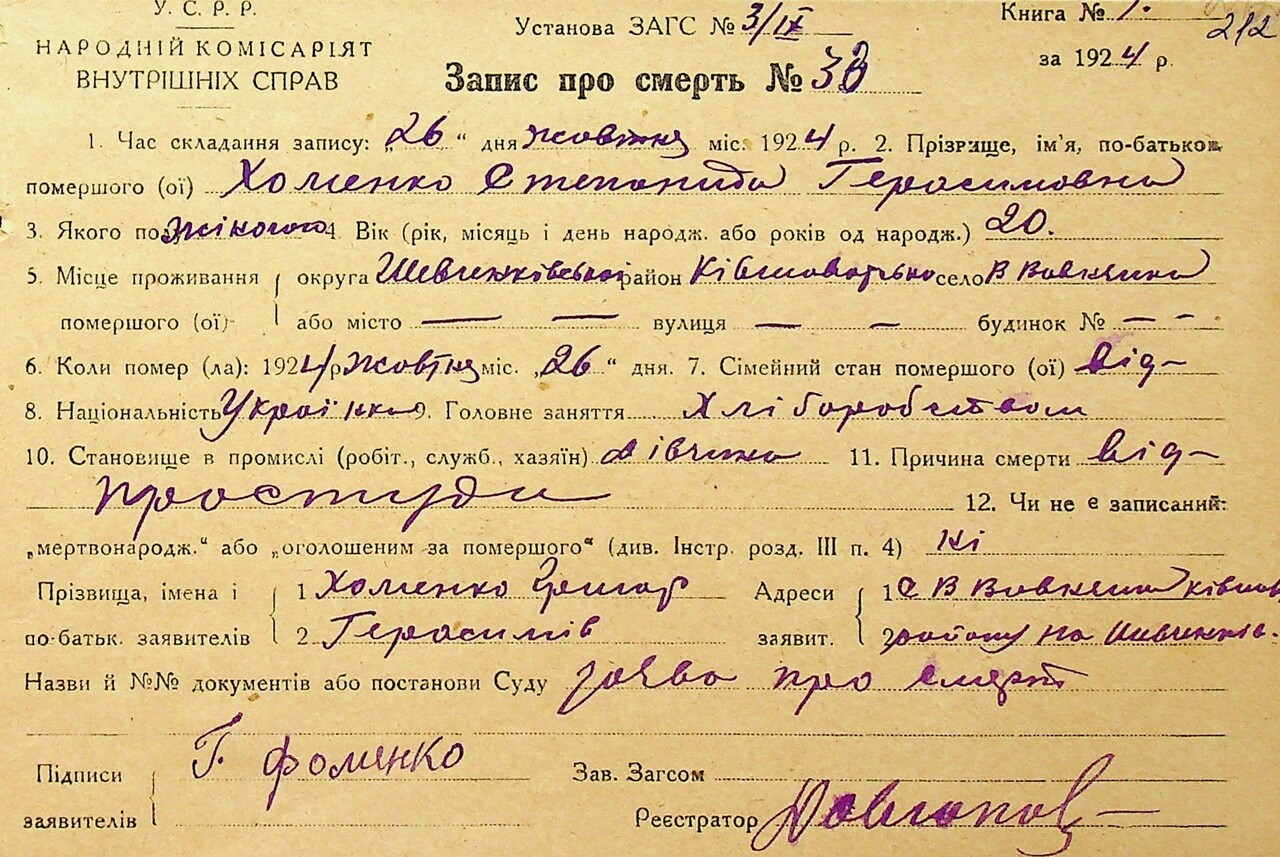 У. С. Р. Р.
НАРОДНІЙ КОМІСАРІЯТ
ВНУТРІШНІХ СПРАВ
Установа ЗАГС № 3/IX
Запис про смерть № 38
Книга № 1.
212
за 1924 р.
1. Час складання запису: „26“ дня жовтня міс. 1924 р. 2. Прізвище, ім'я, по-батькові
помершого (ої) Хоменко Степанида Герасимовна
3. Якого пол жіночого 4. Вік (рік, місяць і день народж. або років од народж.) 20.
5. Місце проживання округа Шевченківської район Ківшоватсько село В Вовнянка
помершого (ої) або місто — — вулиця — — будинок № — -
6. Коли помер (ла): 1924 р жовтня міс. „26“ дня. 7. Сімейний стан помершого (ої)
8. Національність Українка 9. Головне заняття Хліборобством
10. Становище в промислі (робіт., служб., хазяїн) дівчина 11. Причина смерти від-
простуди 12. Чи не є записаний:
„мертвонародж.“ або „оголошеним за помершого“ (див. Інстр. розд. III п. 4) ні
Прізвища, імена і 1 Хоменко Григор Адреси 1 С В Вовнянка
по-батьк. заявителів 2 Герасимів заявит. 2 району на Шевченків.
Назви й №№ документів або постанови Суду заява про смерт
Підписи Г. Фоменко Зав. Загсом
заявителів Реєстратор